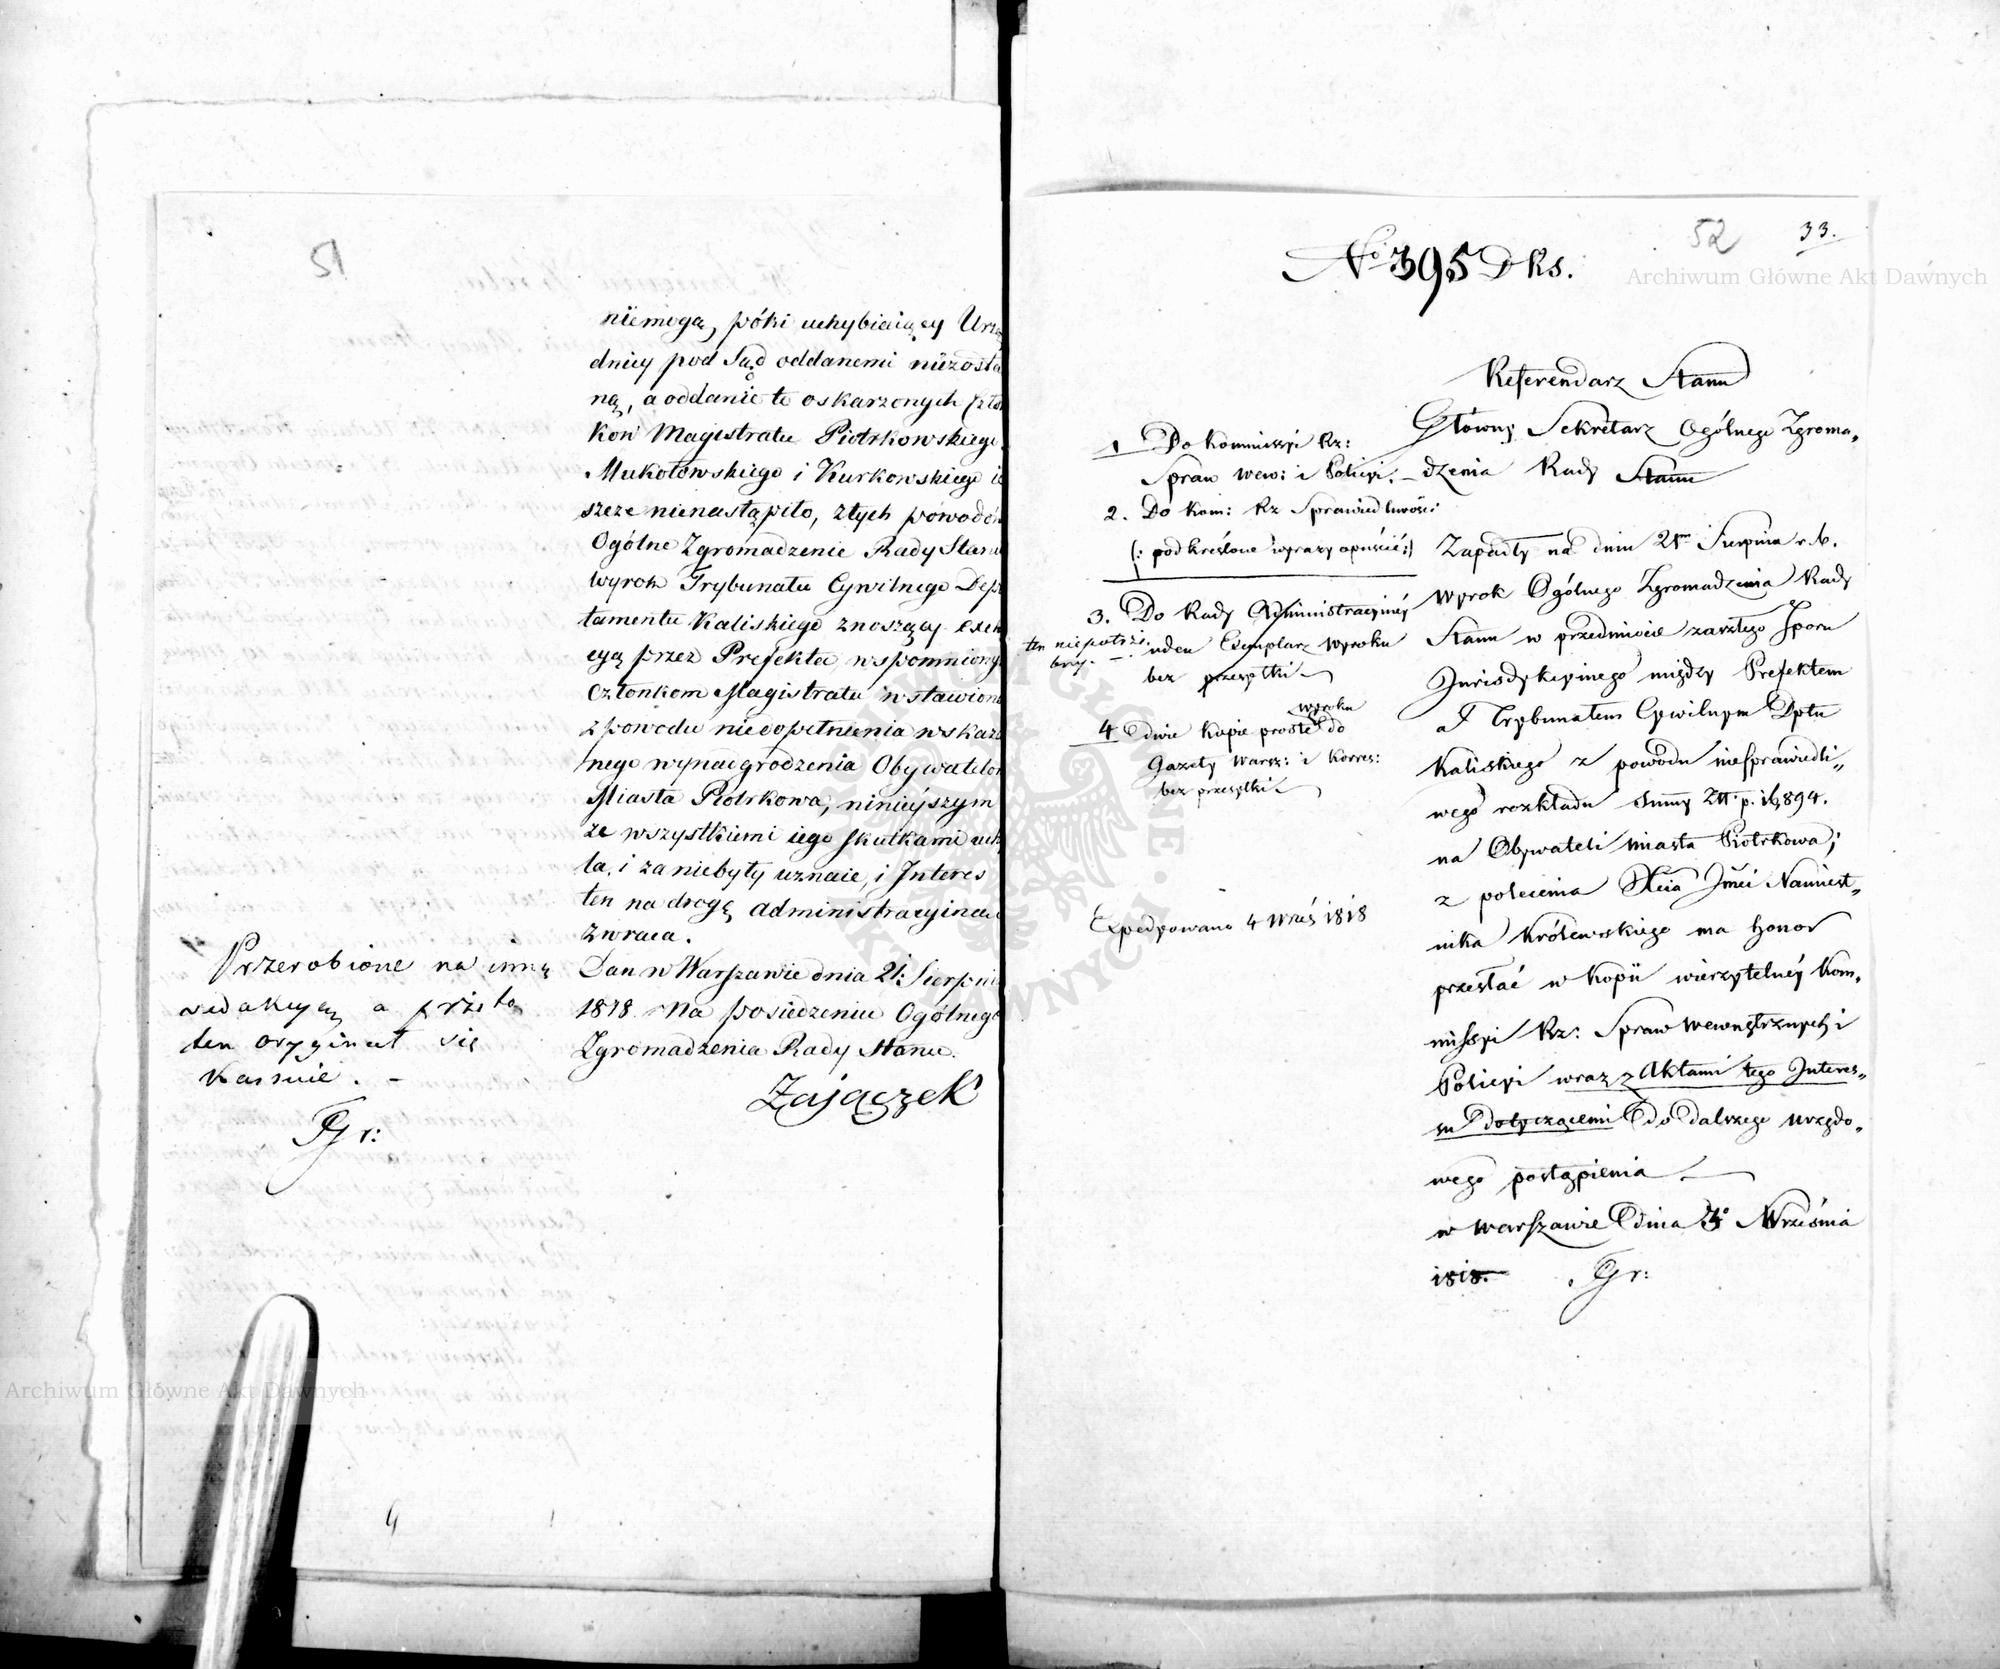 51
niemogą, póki uchybiaiący Urzę
dnicy pod Sąd oddanemi niezosta
ną, a oddanie te oskarzonych Człon
kow Magistratu Piotrkowskiego
Mukołowskiego i Kurkowskiego ie
szcze nienastąpiło, z tych powodów
Ogólne Zgromadzenie Rady Stanu
wyrok Trybunału Cywilnego Depar
tamentu Kaliskiego znoszący exeku
cyą przez Prefekta wspomnionym
Członkom Magistratu wstawioną
z powodu niedopełnienia wskaza
nego wynadgrodzenia Obywatelom
Miasta Piotrkowa, ninieyszym
ze wszystkiemi iego skutkami uchy
la, i za niebyły uznaie, i Interes
ten na drogę administracyiną
zwraca.
Dan w Warszawie dnia 21: Sierpnia
1818. Na posiedzeniu Ogólnego
Zgromadzenia Rady Stanu.
Zajączek
Przerobione na inną
redakcyą a przeto
ten oryginał się
kassuie. –
Gr:
4
52
33.
Archiwum Główne Akt Dawnych
No 395 Dks.
Referendarz Stanu
Główny Sekretarz Ogólnego Zgroma„
dzenia Rady Stanu
1 Do Kommissyi Rz:
Spraw Wew: i Policyi. –
2. Do Kom: Rz Sprawiedliwości
(: podkreślone wyrazy opuścić :)
3. Do Rady Administracyiney
ten niepotrze
bny. –
ieden Exemplarz Wyroku
bez przesyłki
4 Dwie kopie proste wyroku do
Gazety Warsz: i Korres:
bez przesyłki
Expedyowano 4 Wrześ 1818
Zapadły na dniu 21m Sierpnia r. b.
Wyrok Ogólnego Zgromadzenia Rady
Stanu w przedmiocie zaszłego Sporu
Jurisdykcyinego między Prefektem
a Trybunałem Cywilnym Dptu
Kaliskiego z powodu niesprawiedli„
wego rozkładu Summy Złt. p. 16,894.
na Obywateli miasta Piotrkowa;
z polecenia Xcia Jmci Namiest„
nika Królewskiego ma honor
przesłać w kopii wierzytelnéy Kom„
missyi Rz: Spraw Wewnętrznych i
Policyi wraz z Aktami tego Interes„
su dotyczącemi do dalszego urzędo„
wego postąpienia
w Warszawie dnia 3o Września
1818. Gr:
Archiwum Główne Akt Dawnych